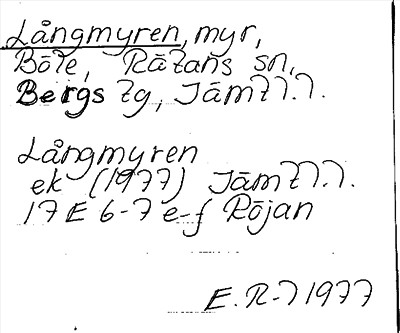 Långmyren, myr,
Böle, Rätans sn,
Bergs tg, Jämtl.l.
Långmyren
ek (1977) Jämtl.l.
17 E 6-7 e-f Röjan
E. R-l 1977